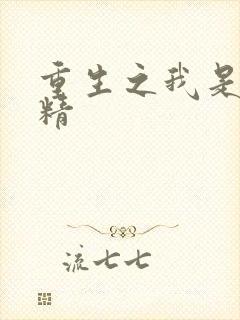 重生之我是
精
流七七